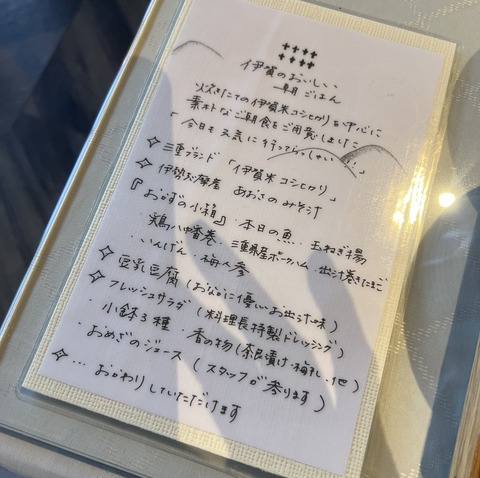 伊賀のおいしい
朝ごはん
炊きたての伊賀米コシヒカリを中心に
素朴なご朝食をご用意しました
「今日も元気に行ってらっしゃい!!」
✧ 三重ブランド「伊賀米コシヒカリ」
✧ 伊勢志摩産 あおさのみそ汁
『おかずの小箱』・本日の魚・玉ねぎ揚
・八幡巻・三重県産ポークハム・出汁巻きたまご
・いんげん・梅人参
✧ 豆乳豆腐(おなかに優しいお出汁味)
✧ フレッシュサラダ(料理長特製ドレッシング)
・小鉢3種・香の物(奈良漬け・梅乳・他)
・おめざのジュース(スタッフが参ります)
✧ … おかわりしていただけます